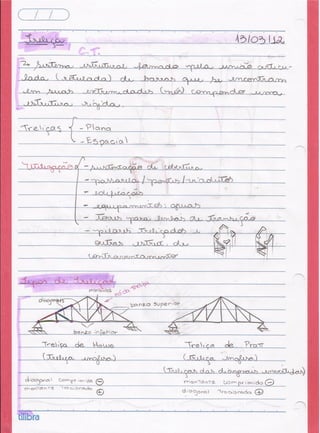 Treliça 13/03/12
C.T.
→ Sistema estrutural formado pela união articu-
lada (rotulada) de barras que se encontram
em suas extremidades (nós) compondo uma
estrutura rígida.
Treliças - Plana
- Espacial
Utilização - sustentação de cobertura
- passarela / pontes / viadutos
- edificações
- equipamentos: gruas
- Torres para linhas de Transmissão
- pilares Treliçados e
outras estrut. de
contraventamento
Tipos de Treliças
diagonal montante nó da treliça
banzo superior
banzo inferior
Treliça de Howe Treliça de Pratt
(Treliça inglesa) (Treliça inglesa)
(Treliças das diagonais invertidas)
diagonal comprimida ⊖ montante comprimido ⊖
montante tracionado ⊕ diagonal tracionada ⊕
tilibra